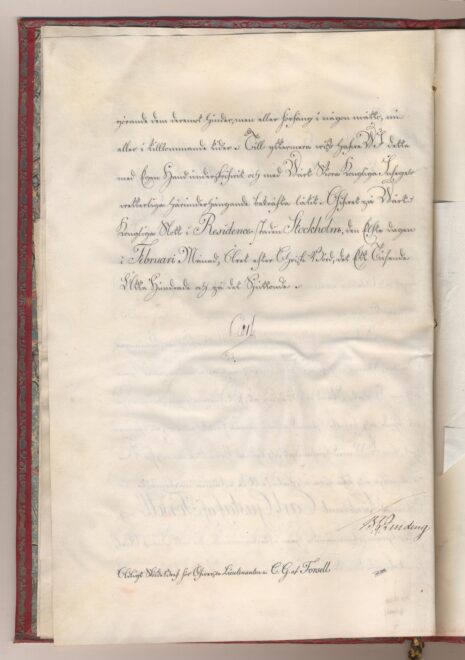 görande dem deremot hinder, men eller förfång i någon måtto, nu
eller i tillkommande tider. Till yttermera visso hafve WI detta
med Egen Hand underskrifvit och med Wårt Stora Kongliga Insegel
vetterligen härunder hängande bekräfta låtit. Som skedde på Wårt
Kongliga Slott i Residence staden Stockholm, den dagen
i Februari Månad, Året efter Christi Börd, det Ett Tusende
Åtta Hundrade och på det Sjuttonde.
Carl
Adeligt Sköldebref för Öfverste Lieutenanten C. G. af Forsell